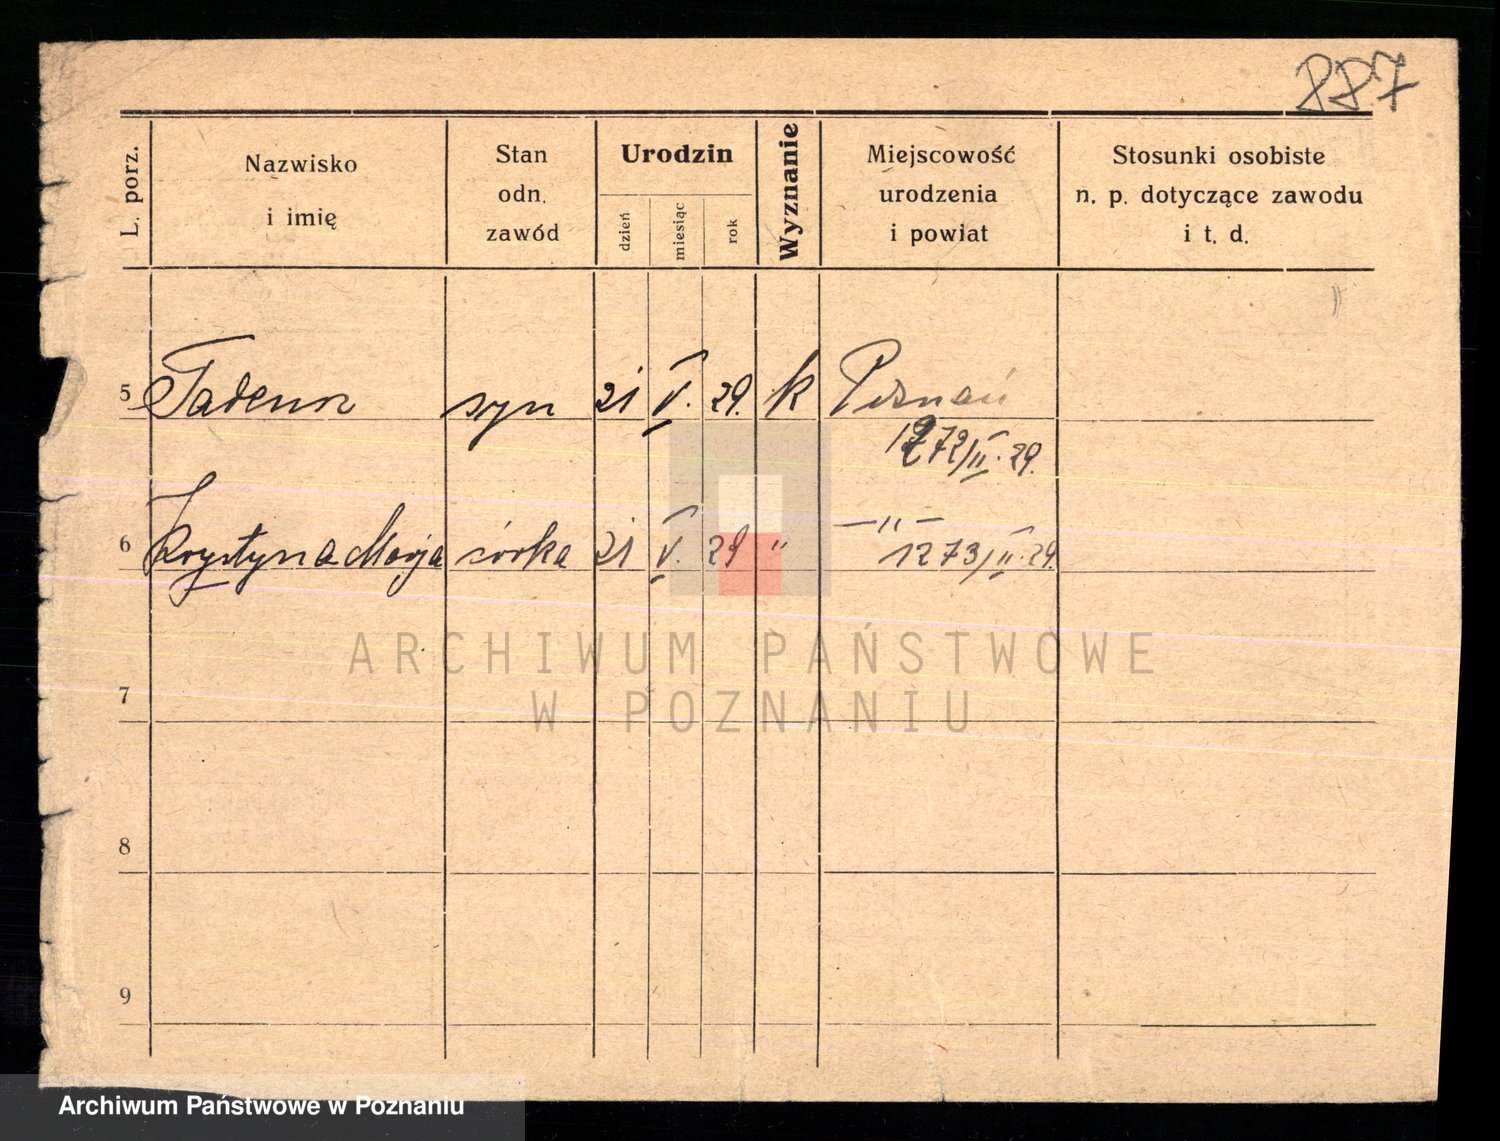 887
L. porz.
Nazwisko
i imię
Stan
odn.
zawód
Urodzin
dzień
miesiąc
rok
Wyznanie
Miejscowość
urodzenia
i powiat
Stosunki osobiste
n. p. dotyczące zawodu
i t. d.
5 Tadeusz syn 21 V. 29. k Poznań
1272/II. 29.
6 Krystyna Marja córka 21 V. 29 " —"—
1273/II. 29.
7
8
9
ARCHIWUM PAŃSTWOWE
W POZNANIU
Archiwum Państwowe w Poznaniu